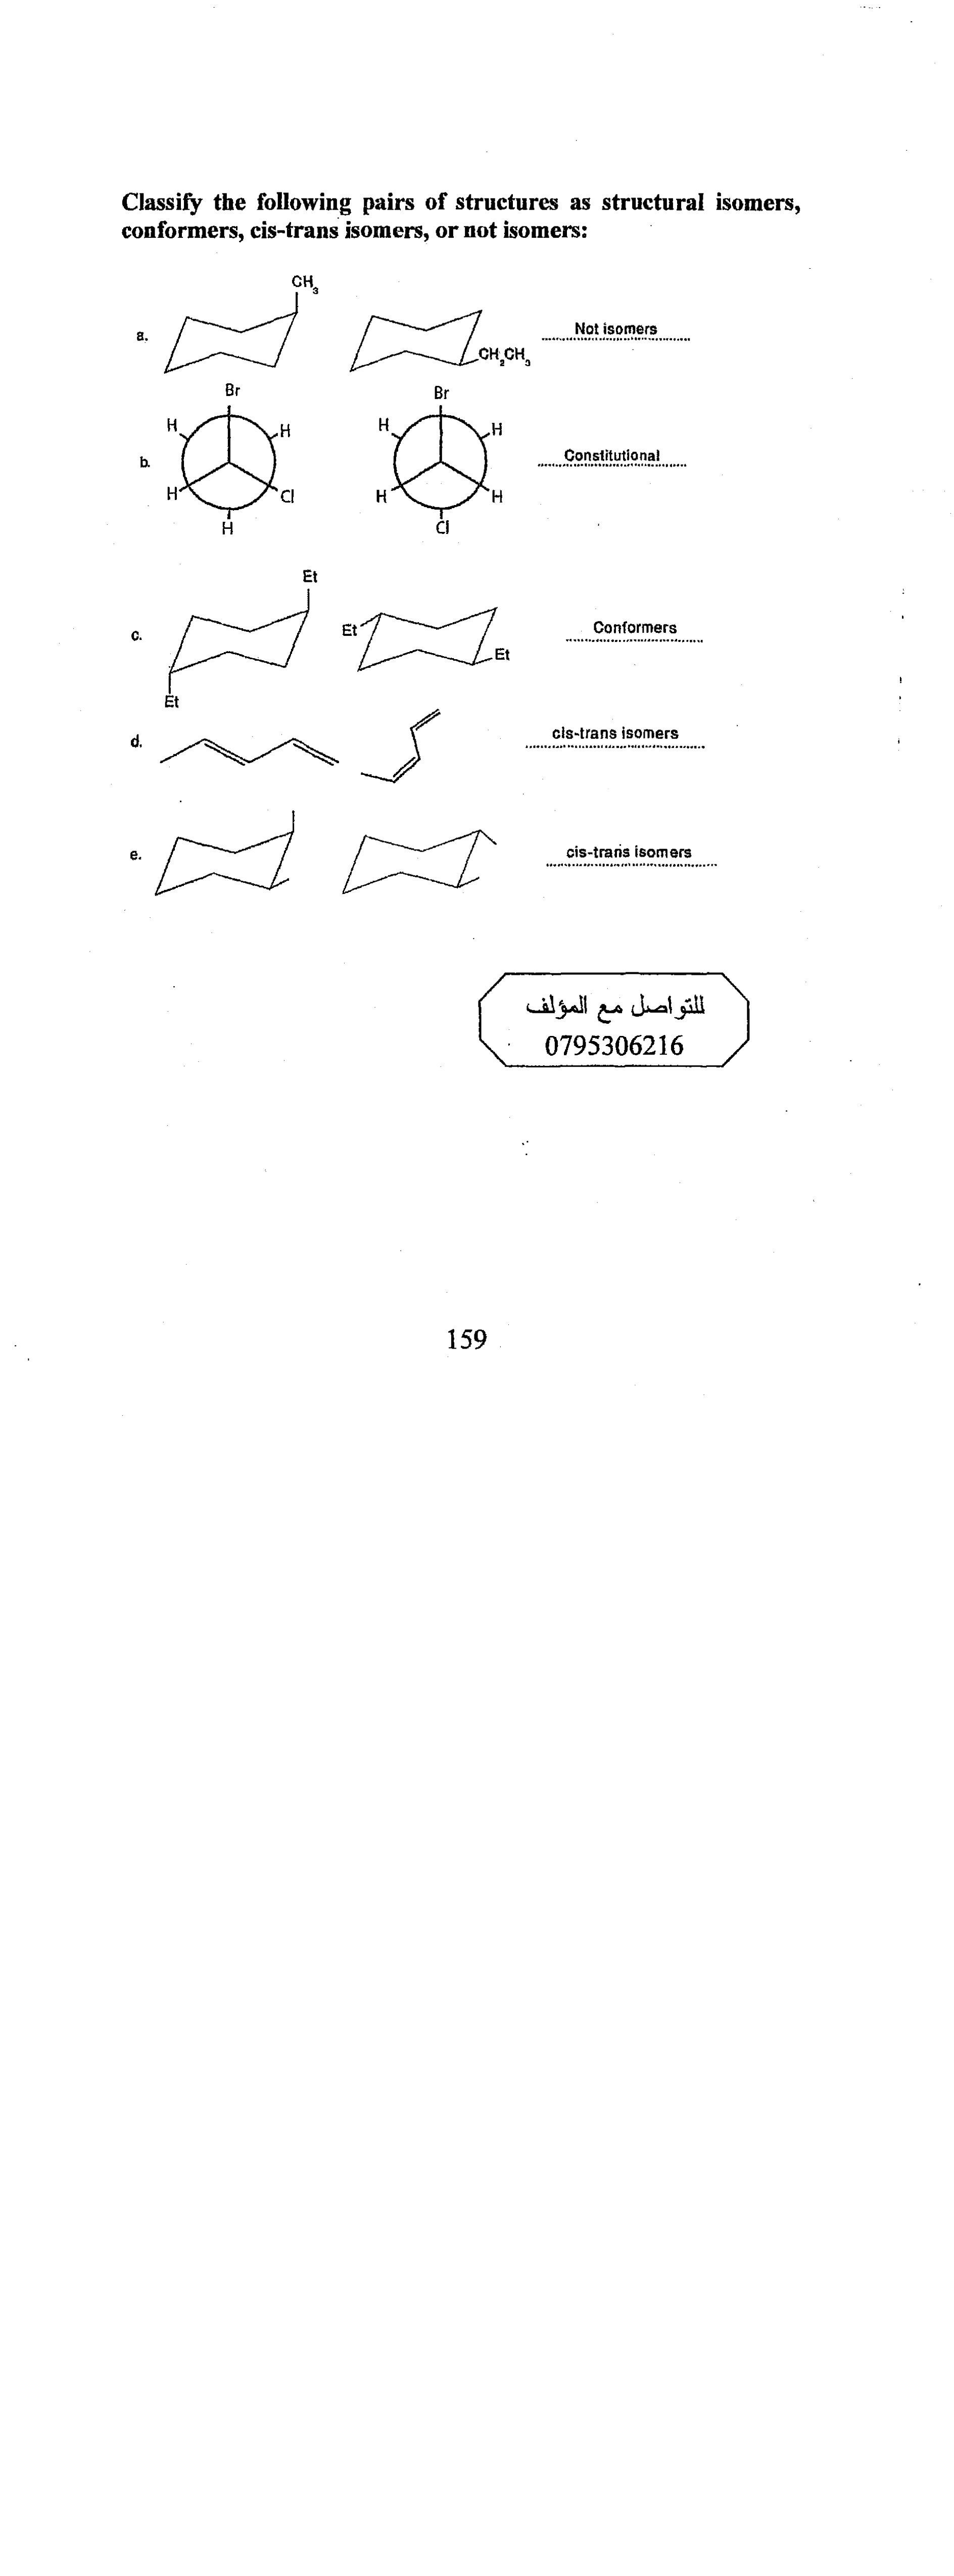 Classify the following pairs of structures as structural isomers,
conformers, cis-trans isomers, or not isomers:
CH3
a.
CH2CH3
Not isomers
Br
Br
H
H
H
H
b.
Constitutional
H
Cl
H
H
H
Cl
Et
c.
Et
Et
Conformers
Et
d.
cis-trans isomers
e.
cis-trans isomers
للتواصل مع المؤلف
0795306216
159